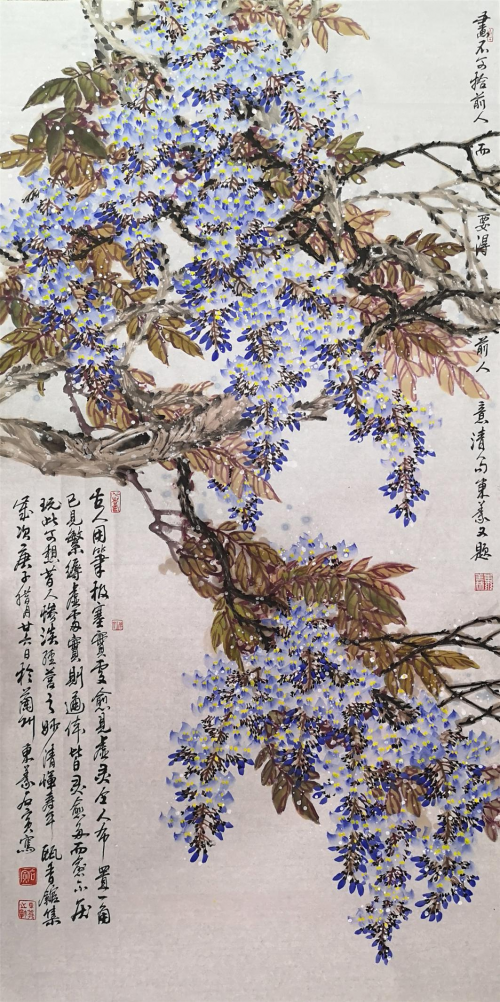 畫不可拾前人而要得前人意清人句東義又題
古人用筆極塞實處愈見虛灵今人布置一角
已見繁縟虛處實則通体皆灵愈多而愈不厌
玩此可想昔人慘淡經營之妙清惲壽平甌香館集
歲次庚子腊月廿六日於蘭州東義石寅寫